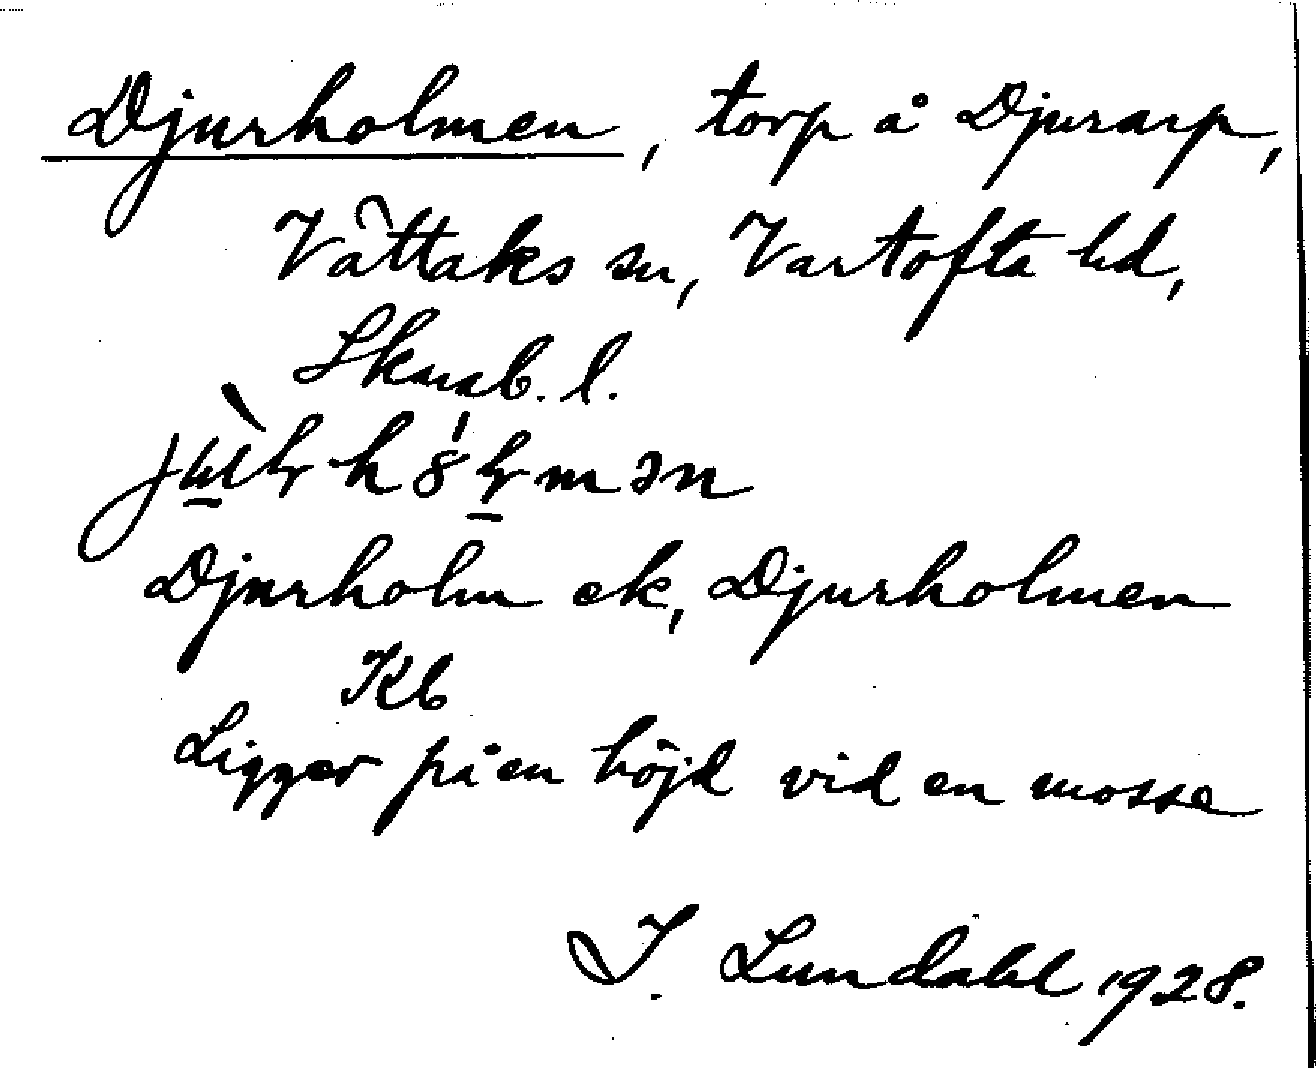 Djurholmen, torp å Djurarp,
Våttaks sn, Vartofta hd,
Skarab. l.
Djurholm ek, Djurholmen
Kb
Ligger på en höjd vid en mosse
I. Lundahl 1928.